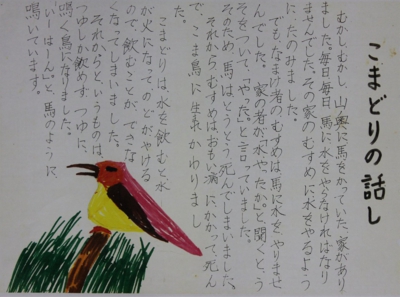 こまどりの話し
むかし、むかし、山の奥に馬をかっていた家があり
ました。毎日毎日、馬に水をやらなければなり
ませんでした。その家のむすめに水をやるよう
に、たのみました。
でもなまけ者のむすめは馬に水をやりませ
んでした。家の者が水やったか。と聞くと、う
そをついて、「やった。」と言っていました。
そのため、馬はとうとう死んでしまいました。
それからむすめはおもい病にかかって、死ん
で、こま鳥に生れかわりまし
た。
こまどりは、水を飲むと水
が火になってのどがやける
ので飲むことができな
くなってしまいました。
それからというものは、
つゆしか飲めず、つゆに、
鳴く鳥になりました。
いーはーんと、馬のように
鳴いています。